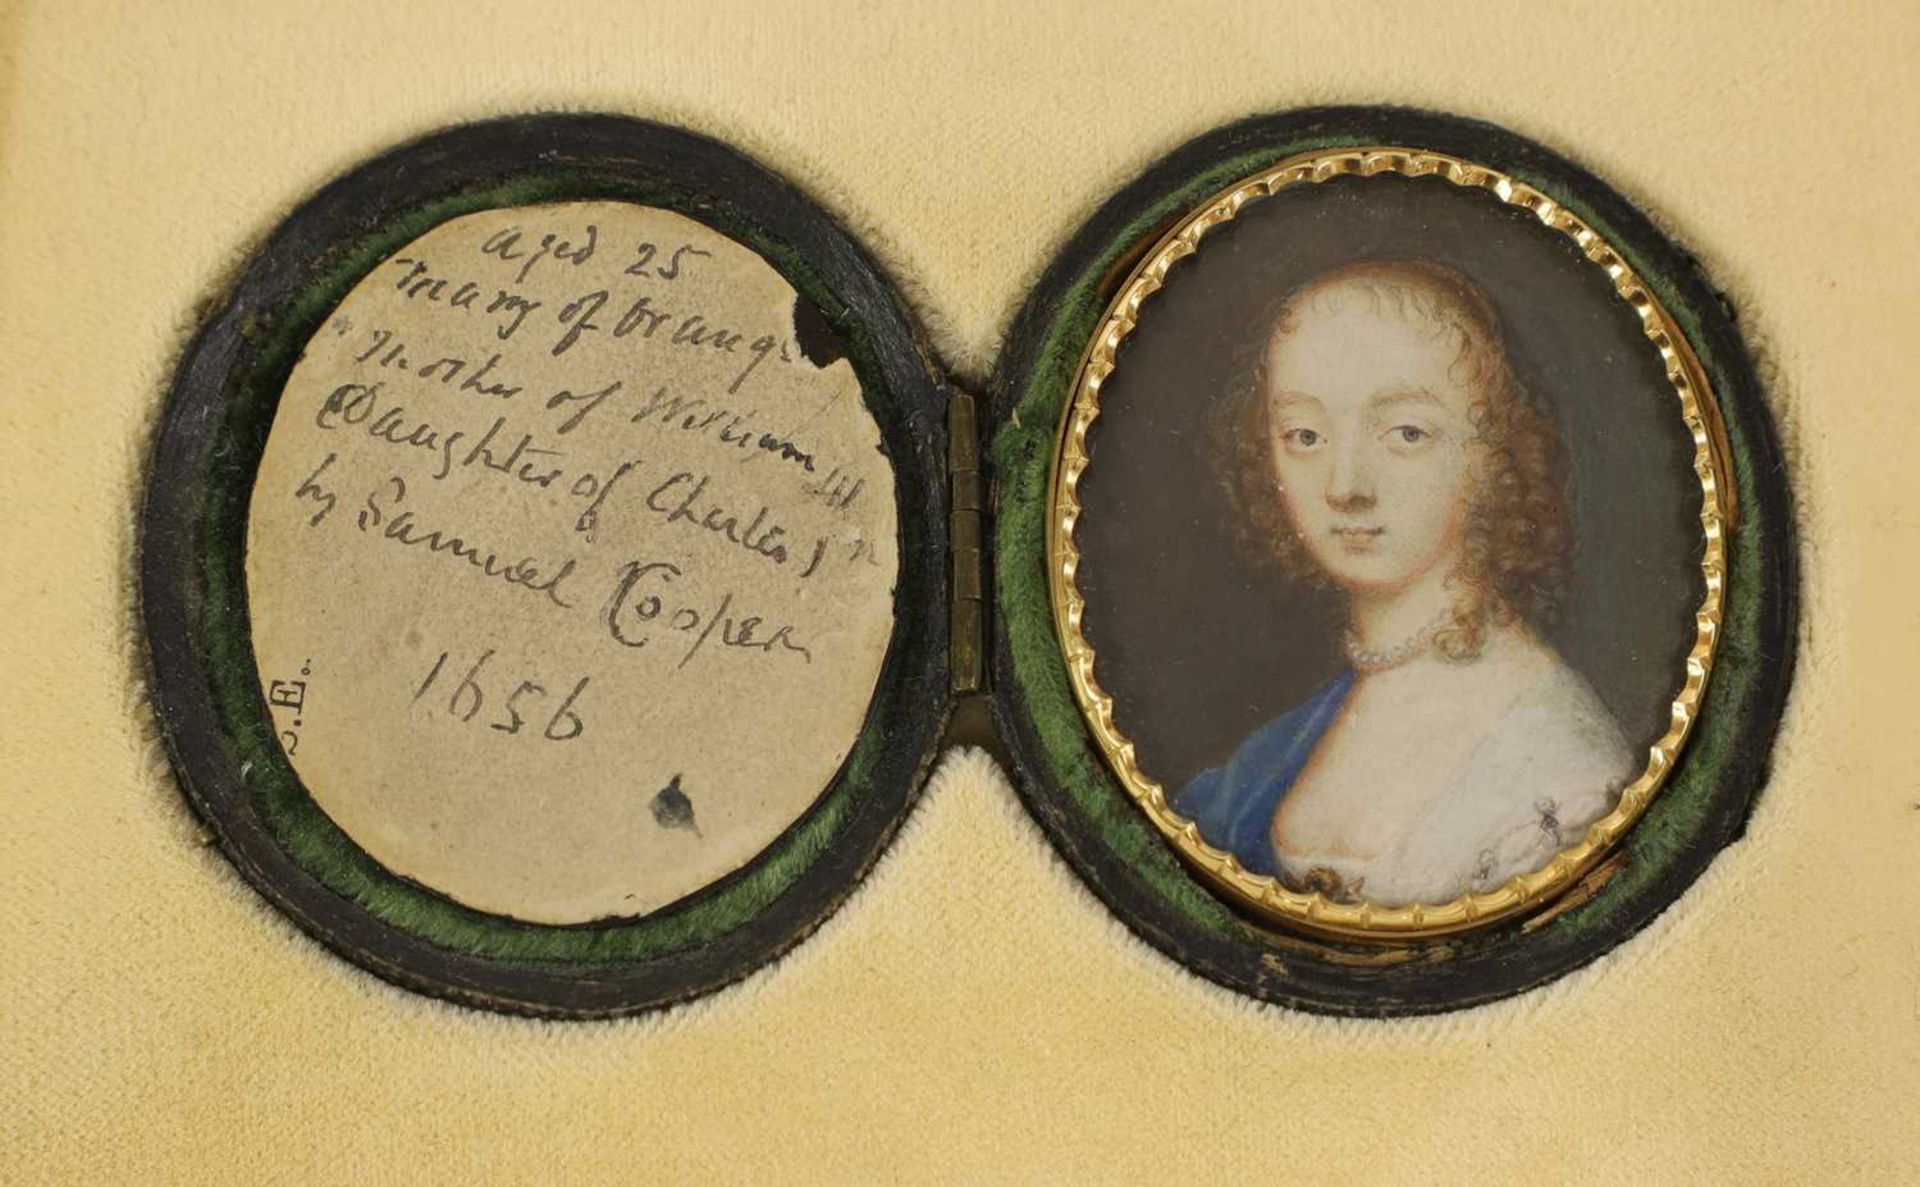 aged 25
mary of Orange
"Mother of William III
Daughter of Charles I"
by Samuel Cooper
1656
E.